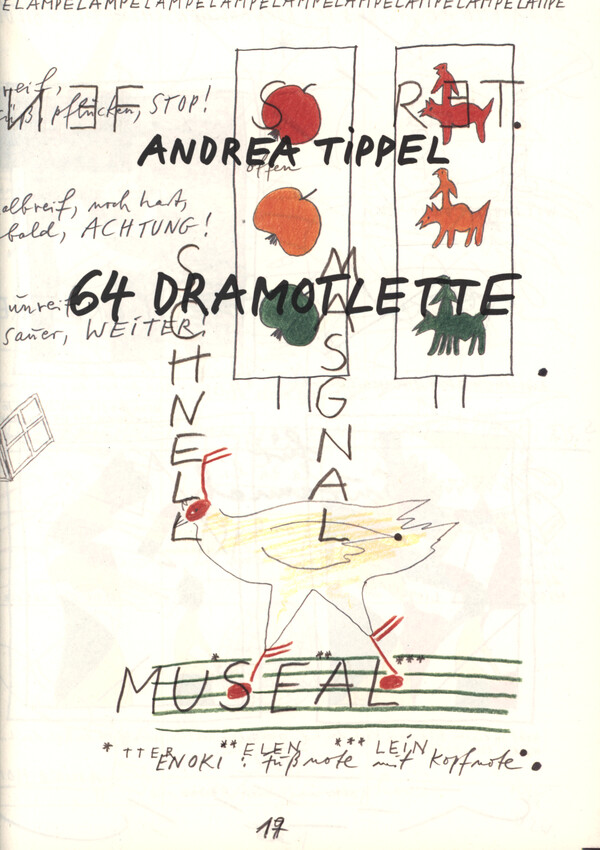 ELAMPELAMPELAMPELAMPELAMPELAMPELAMPELAMPELAMPELAMPE
reif,
pflücken, STOP!
ANDREA TIPPEL
offen
albreif, noch hart,
bald, ACHTUNG!
64 DRAMOTLETTE
unreif
sauer, WEITER!
SCHNELL
MASGNAL
MUSEÄL
* TTER **ELEN *** LEIN
ENOKI: Fußnote mit Kopfnote